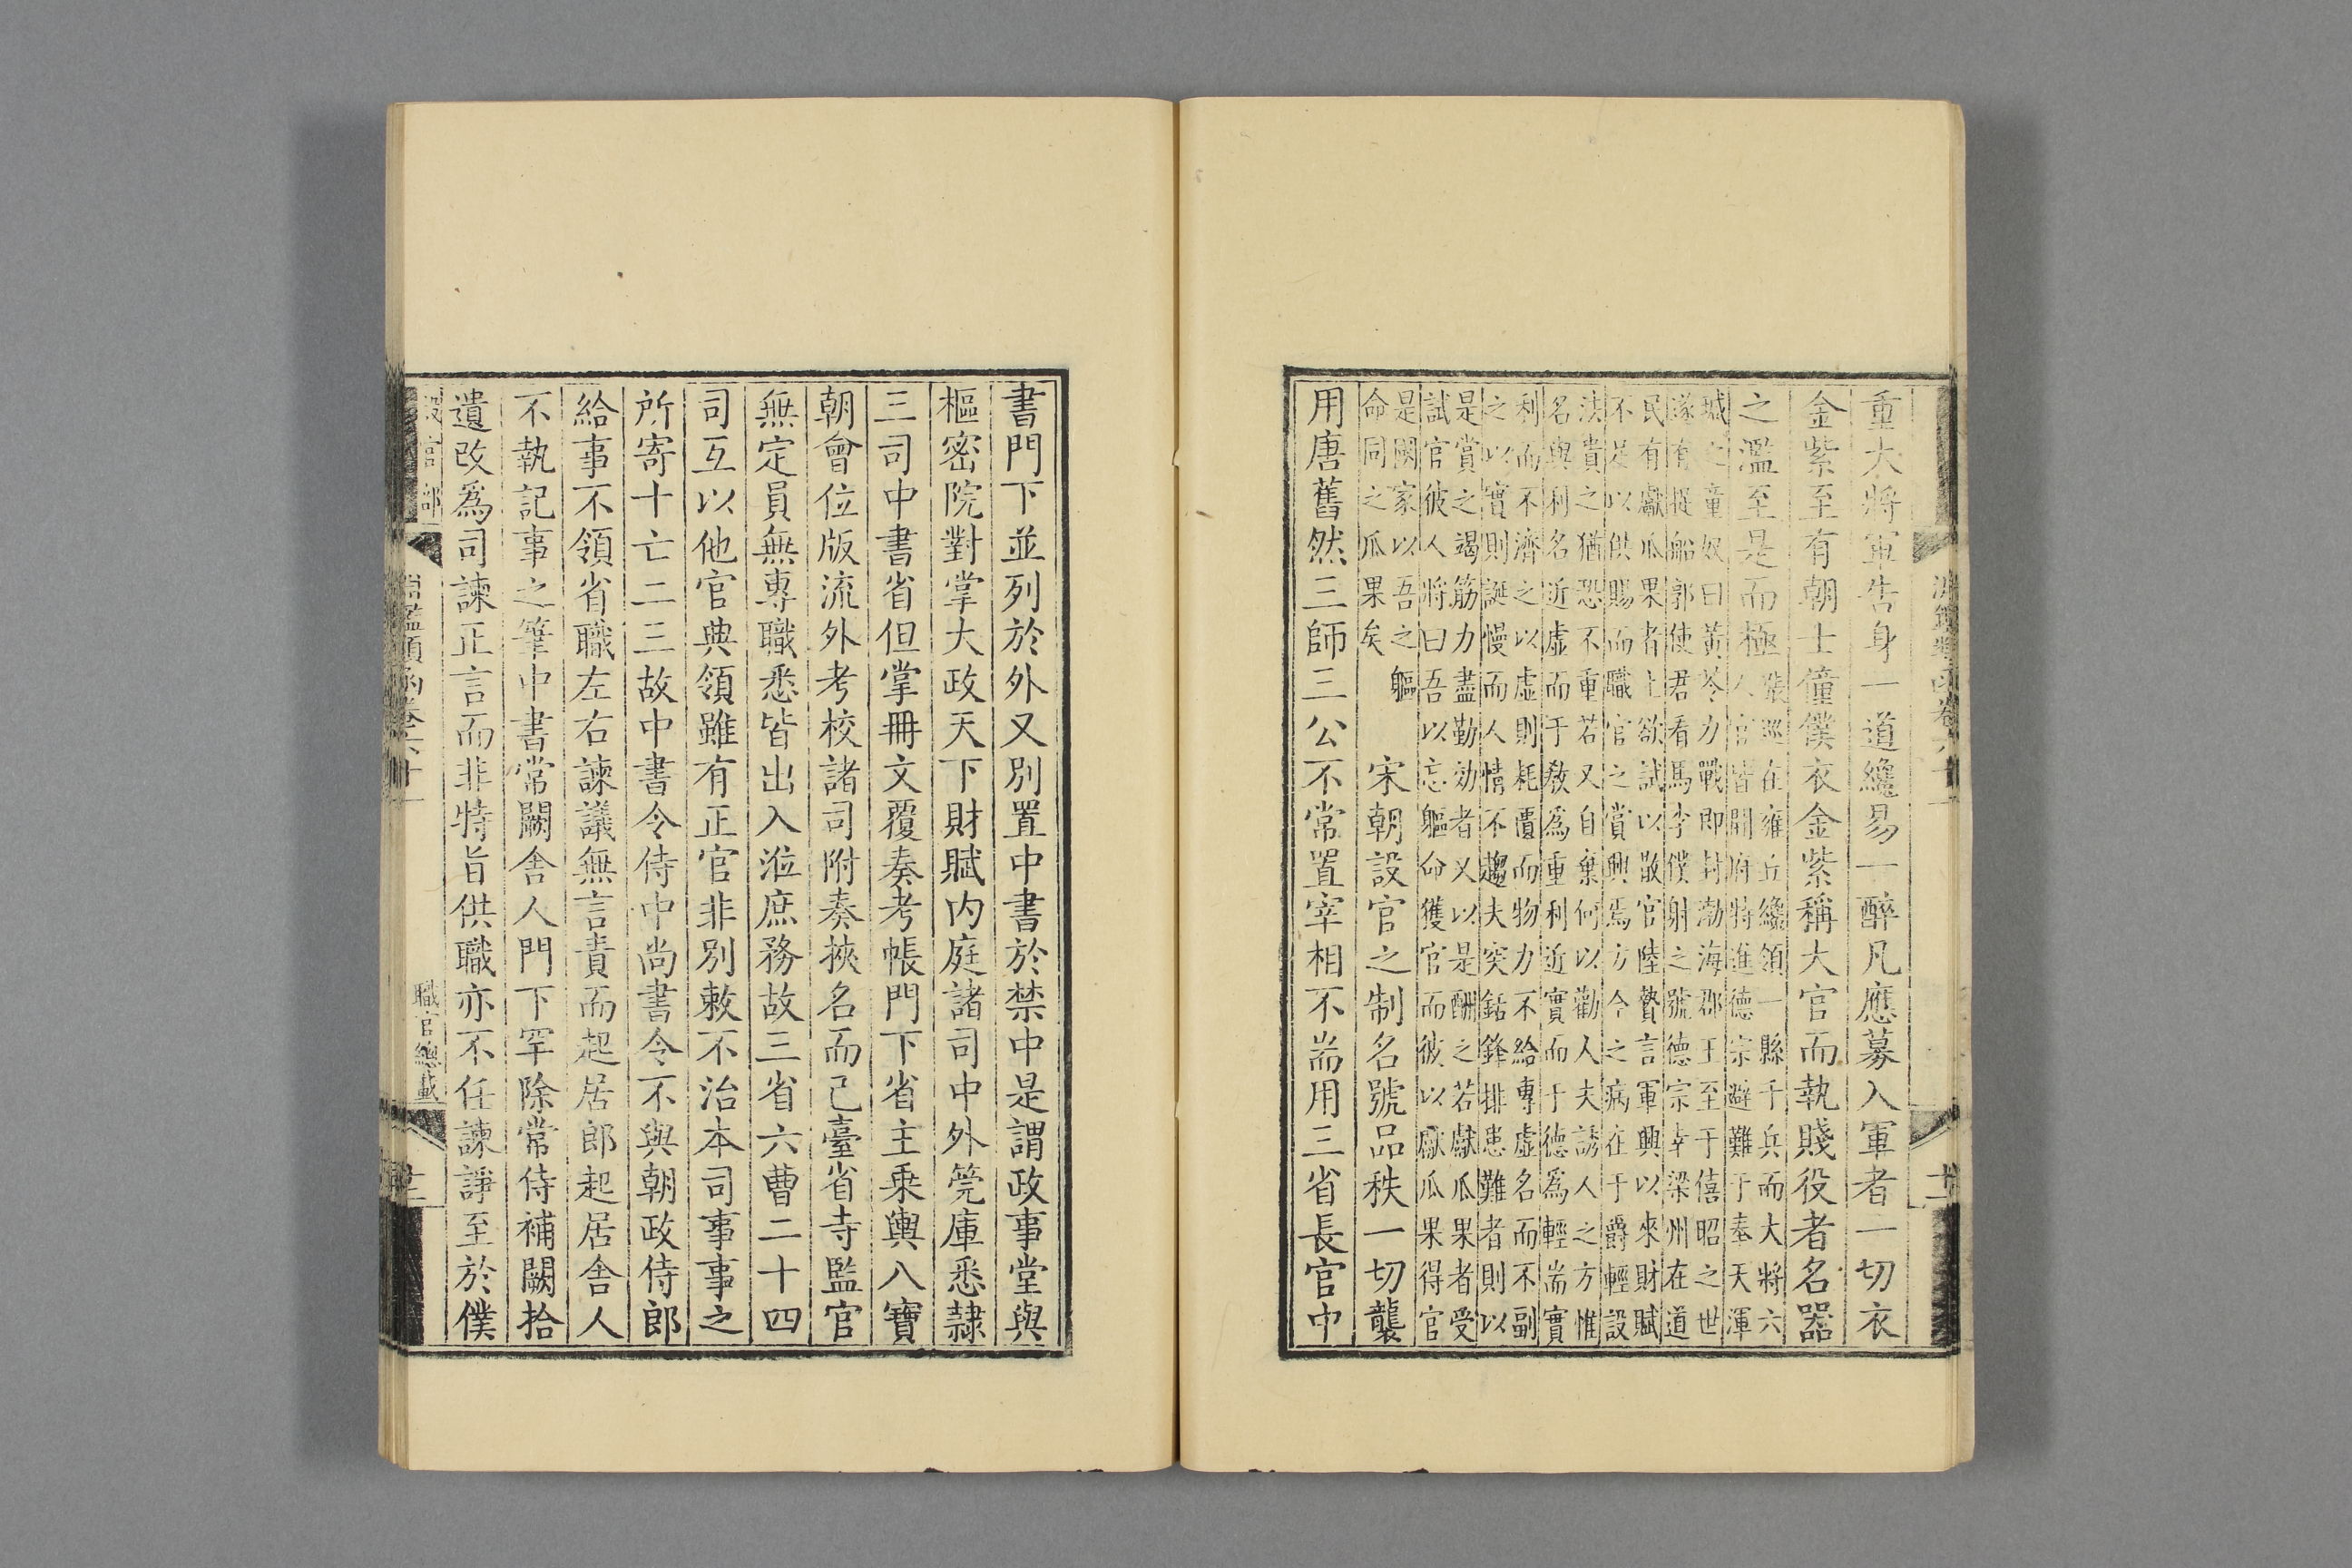 淵鑑類函卷六十一
重大將軍告身一道纔易一醉凡應募入軍者一切衣
金紫至有朝士僮僕衣金紫稱大官而執賤役者名器
之濫至是而極
張巡在雍丘纔領一縣千兵而大將六
人官皆開府特進德宗避難于奉天渾
瑊之童奴曰黃芩力戰即封渤海郡王至于僖昭之世
遂有捉船郭使君看馬李僕射之號德宗幸梁州在道
民有獻瓜果者上欲試以散官陸贄言軍興以來財賦
不足以供賜而職官之賞興焉方今之病在于爵輕設
法貴之猶恐不重若又自棄何以勸人夫誘人之方惟
名與利名近虛而于敎爲重利近實而于德爲輕耑實
利而不濟之以虛則耗匱而物力不給專虛名而不副
之以實則誕慢而人情不趨夫突銛鋒排患難者則以
是賞之竭筋力盡勤効者又以是酬之若獻瓜果者受
試官彼人將曰吾以忘軀命獲官而彼以獻瓜果得官
是國家以吾之軀
命同之瓜果矣
宋朝設官之制名號品秩一切襲
用唐舊然三師三公不常置宰相不耑用三省長官中
書門下並列於外又別置中書於禁中是謂政事堂與
樞密院對掌大政天下財賦內庭諸司中外筦庫悉隷
三司中書省但掌冊文覆奏考帳門下省主乗輿八寶
朝會位版流外考校諸司附奏挾名而已臺省寺監官
無定員無專職悉皆出入涖庶務故三省六曹二十四
司互以他官典領雖有正官非別敕不治本司事事之
所寄十亡二三故中書令侍中尚書令不與朝政侍郎
給事不領省職左右諫議無言責而起居郎起居舍人
不執記事之筆中書常闕舍人門下罕除常侍補闕拾
遺改爲司諫正言而非特旨供職亦不任諫諍至於僕
設官部
淵鑑類函卷六十一
職官總載